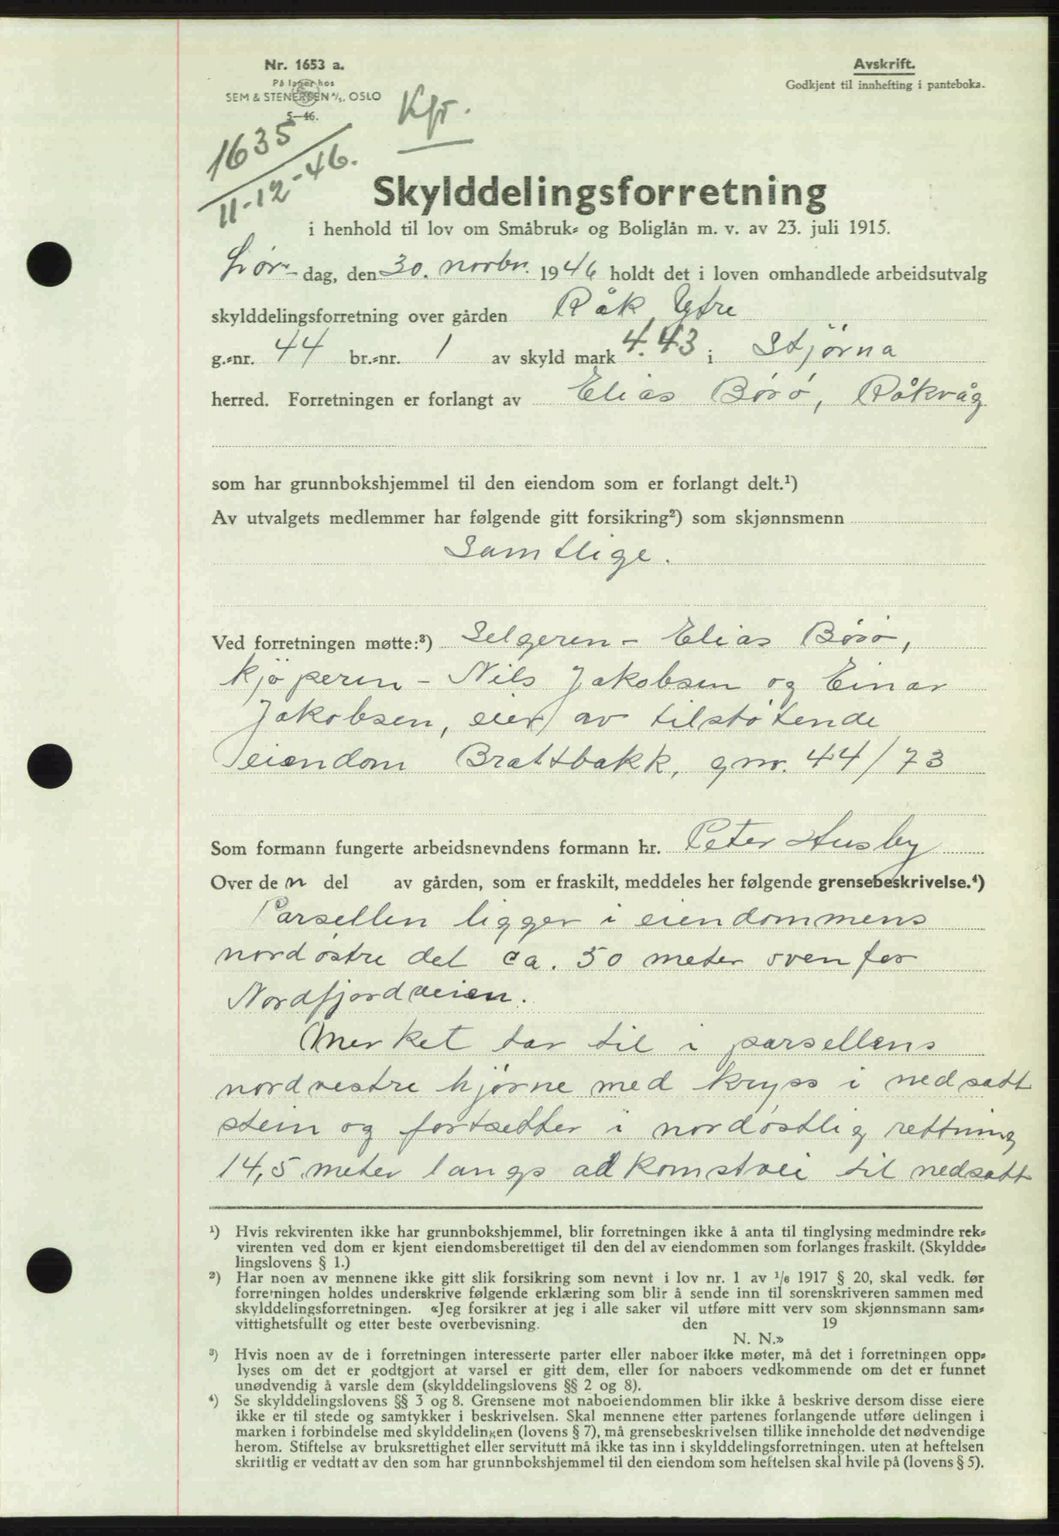 Nr. 1653 a.
På lager hos
SEM & STENERSEN A/S. OSLO
5—46.
Avskrift.
Godkjent til innhefting i panteboka.
Kfr.
1635
11-12-46.
Skylddelingsforretning
i henhold til lov om Småbruk- og Boliglån m. v. av 23. juli 1915.
Lør- dag, den 30. novbr. 1946 holdt det i loven omhandlede arbeidsutvalg
skylddelingsforretning over gården Råk Ytre
g.-nr. 44 br.-nr. 1 av skyld mark 4.43 i Stjørna
herred. Forretningen er forlangt av Elias Børø, Råkvåg
som har grunnbokshjemmel til den eiendom som er forlangt delt.¹)
Av utvalgets medlemmer har følgende gitt forsikring²) som skjønnsmenn
Samtlige.
Ved forretningen møtte:³) Selgeren - Elias Børø,
kjøperen - Nils Jakobsen og Einar
Jakobsen, eier av tilstøtende
eiendom Brattbakk, gnr. 44/73
Som formann fungerte arbeidsnevndens formann hr. Peter Husby
Over den del av gården, som er fraskilt, meddeles her følgende grensebeskrivelse.⁴)
Parsellen ligger i eiendommens
nordøstre del ca. 50 meter ovenfor
Nordfjordveien.
Merket tar til i parsellens
nordvestre hjørne med kryss i nedsatt
stein og fortsetter i nordøstlig rettning
14,5 meter langs adkomstvei til nedsatt
¹) Hvis rekvirenten ikke har grunnbokshjemmel, blir forretningen ikke å anta til tinglysing medmindre rek-
virenten ved dom er kjent eiendomsberettiget til den del av eiendommen som forlanges fraskilt. (Skyldde-
lingslovens § 1.)
²) Har noen av mennene ikke gitt slik forsikring som nevnt i lov nr. 1 av 1/6 1917 § 20, skal vedk. før
forretningen holdes underskrive følgende erklæring som blir å sende inn til sorenskriveren sammen med
skylddelingsforretningen. «Jeg forsikrer at jeg i alle saker vil utføre mitt verv som skjønnsmann sam-
vittighetsfullt og etter beste overbevisning. den 19
N. N.»
³) Hvis noen av de i forretningen interesserte parter eller naboer ikke møter, må det i forretningen opp-
lyses om det er godtgjort at varsel er gitt dem, eller for naboers vedkommende om det er funnet
unødvendig å varsle dem (skylddelingslovens §§ 2 og 8).
⁴) Se skylddelingslovens §§ 3 og 8. Grensene mot naboeiendommen blir ikke å beskrive dersom disse eiere
ikke er til stede og samtykker i beskrivelsen. Skal mennene etter partenes forlangende utføre delingen i
marken i forbindelse med skylddelingen (lovens § 7), må grensebeskrivelsen tillike inneholde det nødvendige
herom. Stiftelse av bruksrettighet eller servitutt må ikke tas inn i skylddelingsforretningen. uten at heftelsen
skriftlig er vedtatt av den som har grunnbokshjemmel til den eiendom som heftelsen skal hvile på (lovens § 5).